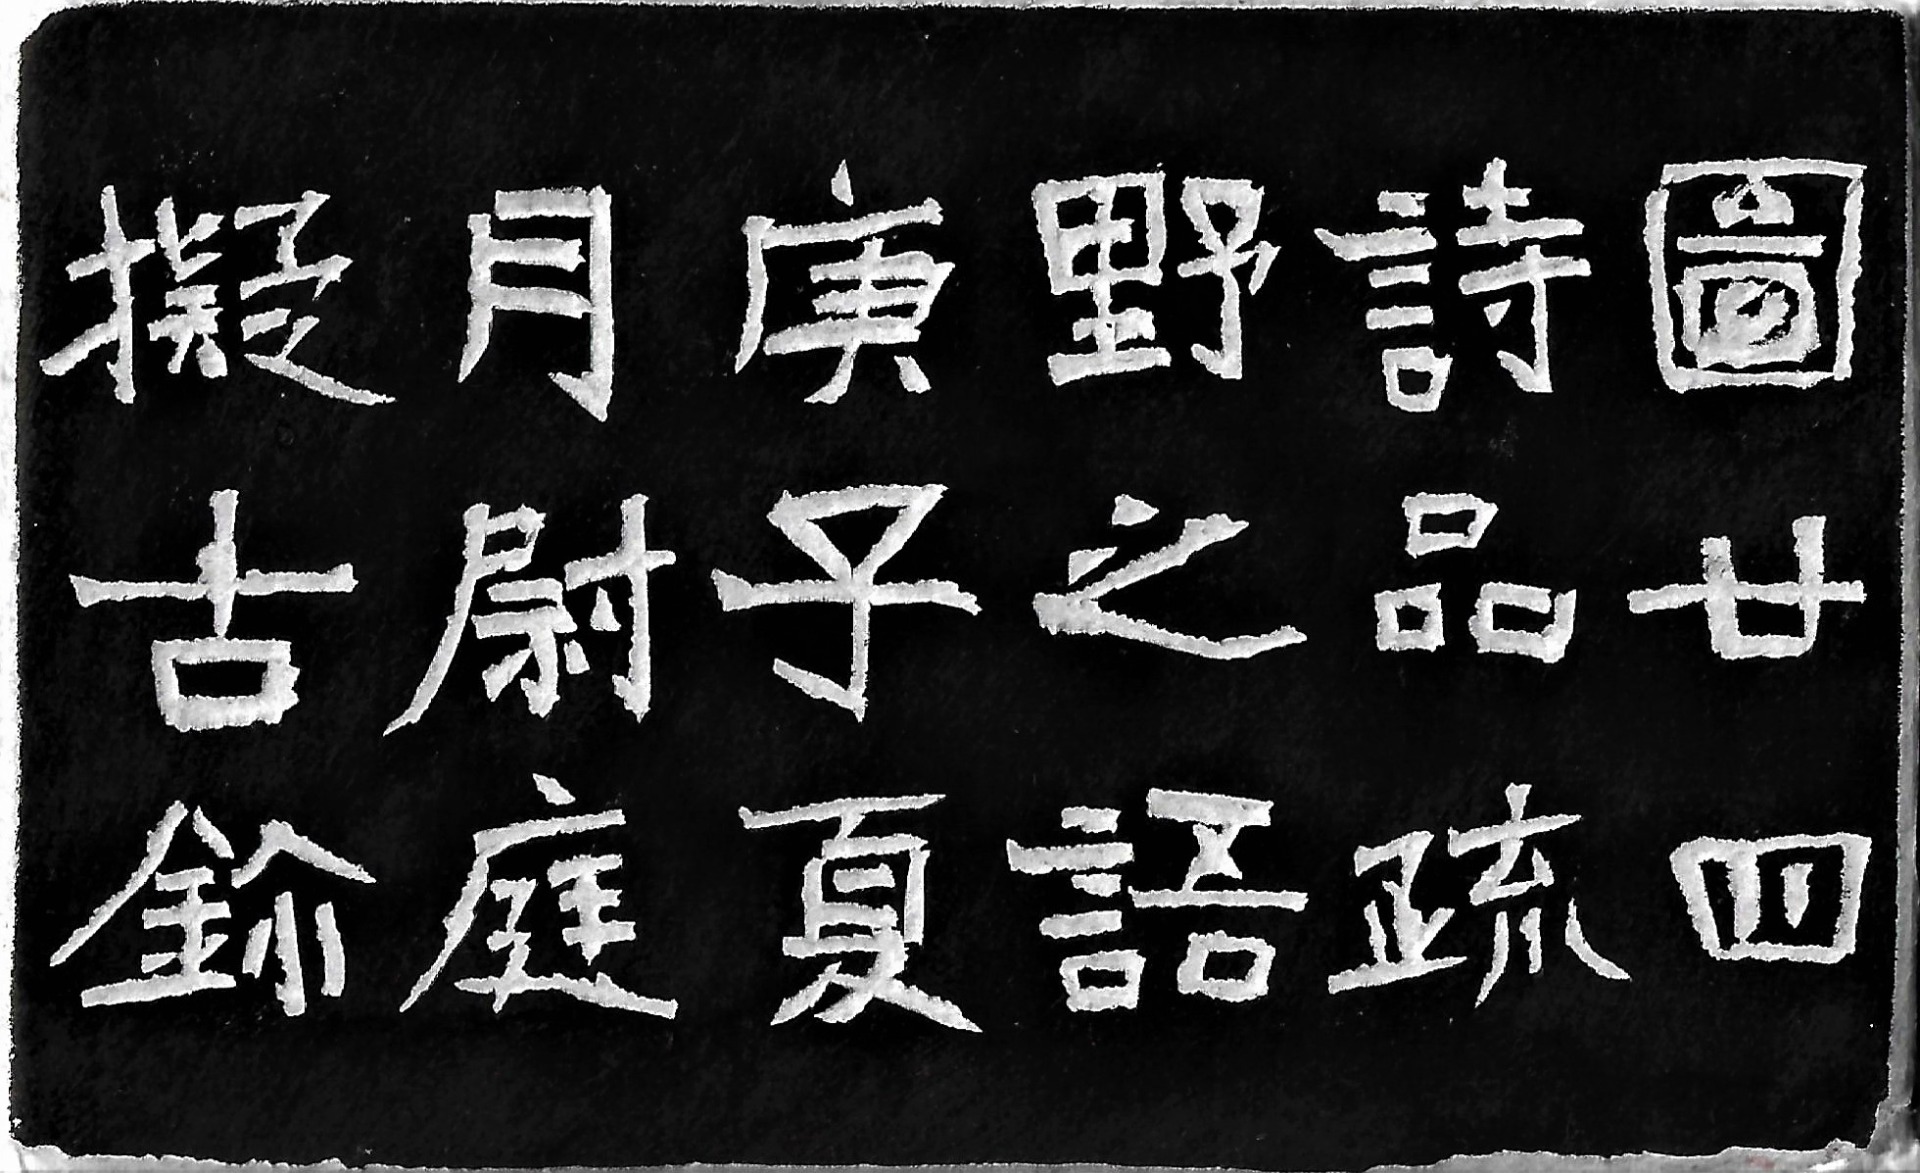 圖廿四
詩品疏
野之語
庚子夏
月尉庭
擬古鍮